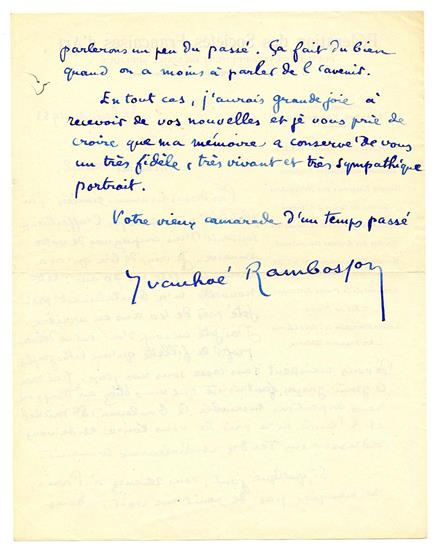 parlerons un peu du passé. Ça fait du bien
quand on a moins à parler de l'avenir.
En tout cas, j'aurais grande joie à
recevoir de vos nouvelles et je vous prie de
croire que ma mémoire a conservé de vous
un très fidèle, très vivant et très sympathique
portrait.
Votre vieux camarade d'un temps passé
Yvanhoé Rambosson